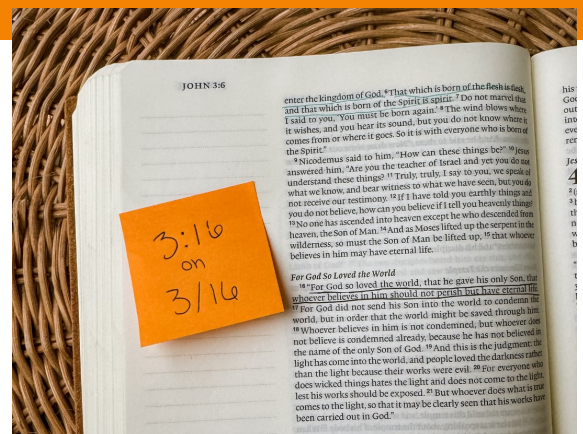 JOHN 3:6
enter the kingdom of God. 6 That which is born of the flesh is flesh,
and that which is born of the Spirit is spirit. 7 Do not marvel that
I said to you, ‘You must be born again.’ 8 The wind blows where
it wishes, and you hear its sound, but you do not know where it
comes from or where it goes. So it is with everyone who is born of
the Spirit.”
9 Nicodemus said to him, “How can these things be?” 10 Jesus
answered him, “Are you the teacher of Israel and yet you do not
understand these things? 11 Truly, truly, I say to you, we speak of
what we know, and bear witness to what we have seen, but you do
not receive our testimony. 12 If I have told you earthly things and
you do not believe, how can you believe if I tell you heavenly things?
13 No one has ascended into heaven except he who descended from
heaven, the Son of Man. 14 And as Moses lifted up the serpent in the
wilderness, so must the Son of Man be lifted up, 15 that whoever
believes in him may have eternal life.
For God So Loved the World
16 “For God so loved the world, that he gave his only Son, that
whoever believes in him should not perish but have eternal life.
17 For God did not send his Son into the world to condemn the
world, but in order that the world might be saved through him.
18 Whoever believes in him is not condemned, but whoever does
not believe is condemned already, because he has not believed in
the name of the only Son of God. 19 And this is the judgment: the
light has come into the world, and people loved the darkness rather
than the light because their works were evil. 20 For everyone who
does wicked things hates the light and does not come to the light,
lest his works should be exposed. 21 But whoever does what is true
comes to the light, so that it may be clearly seen that his works have
been carried out in God.”
3:16
on
3/16
his
4